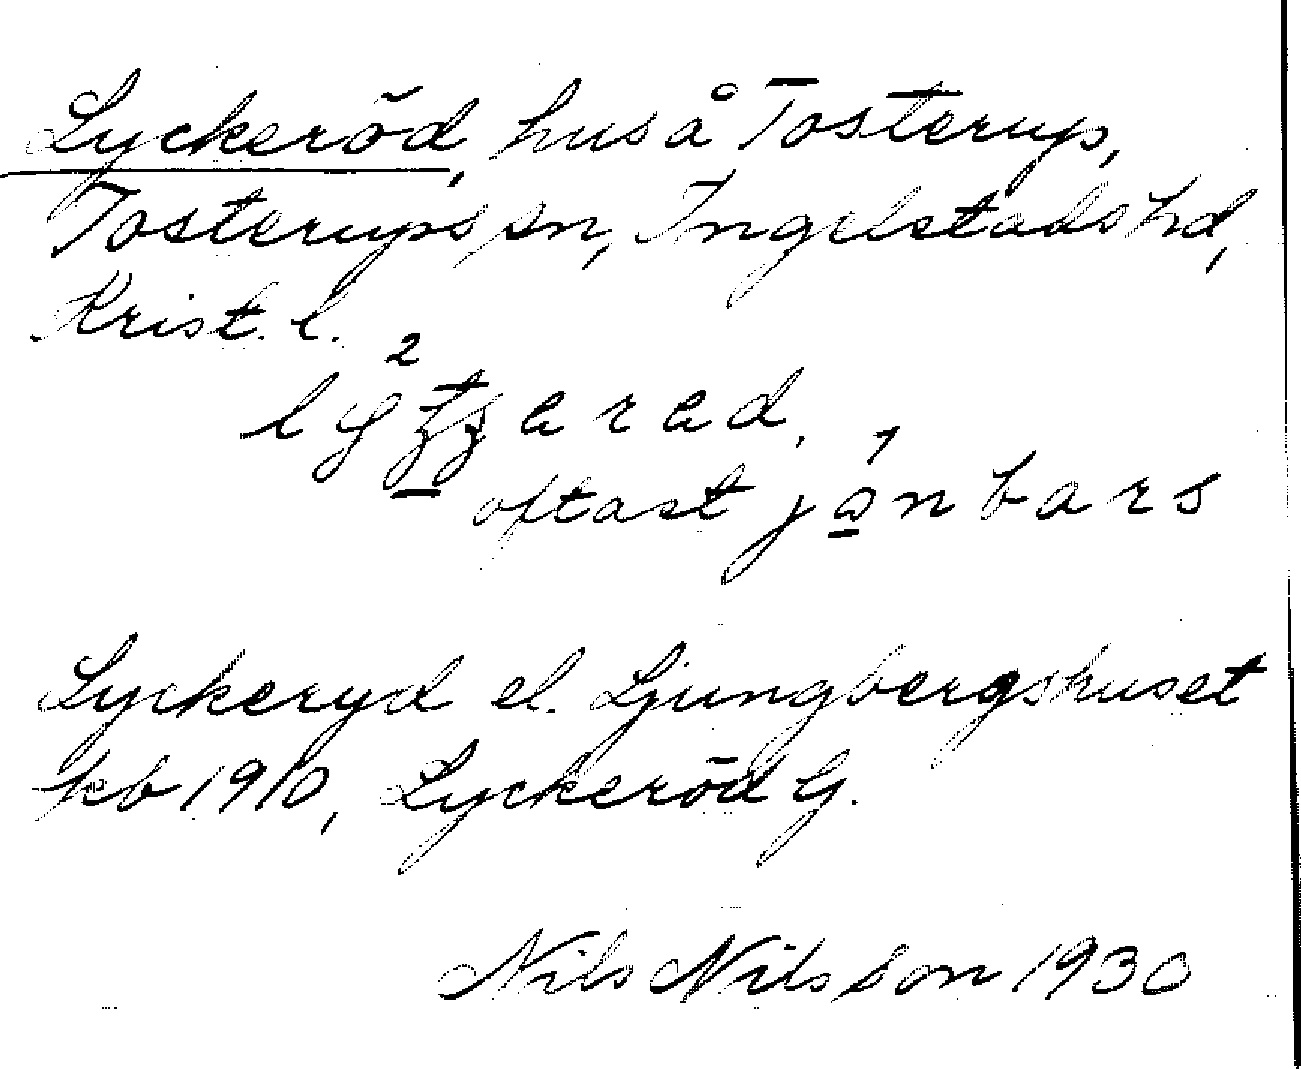 Lyckeröd, hus å Tosterup,
Tosterups sn, Ingelstads hd,
Krist. l.
oftast
Lyckeryd el. Ljungbergshuset
kb 1910, Lyckeröd G.
Nils Nilsson 1930